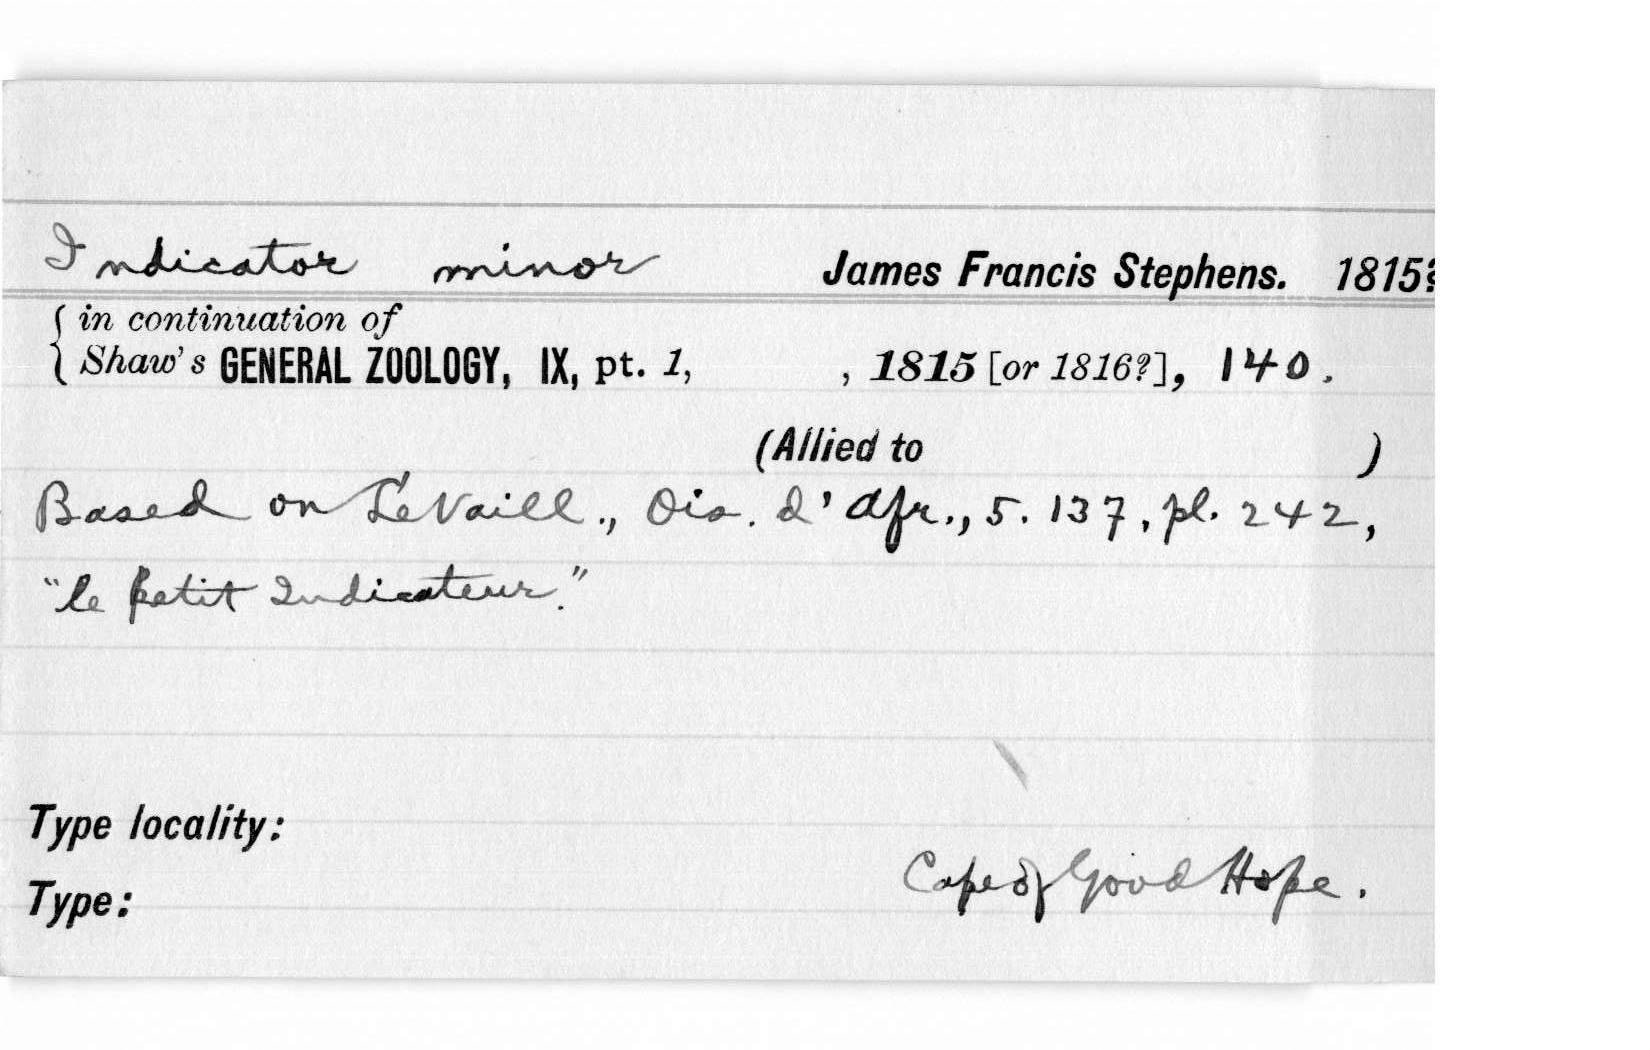 Indicator minor James Francis Stephens. 1815?
in continuation of
Shaw's GENERAL ZOOLOGY, IX, pt. 1, , 1815 [or 1816?], 140.
(Allied to )
Based on LeVaill., Ois. d'Afr., 5. 137, pl. 242,
"le petit Indicateur."
Type locality:
Cape of Good Hope.
Type: